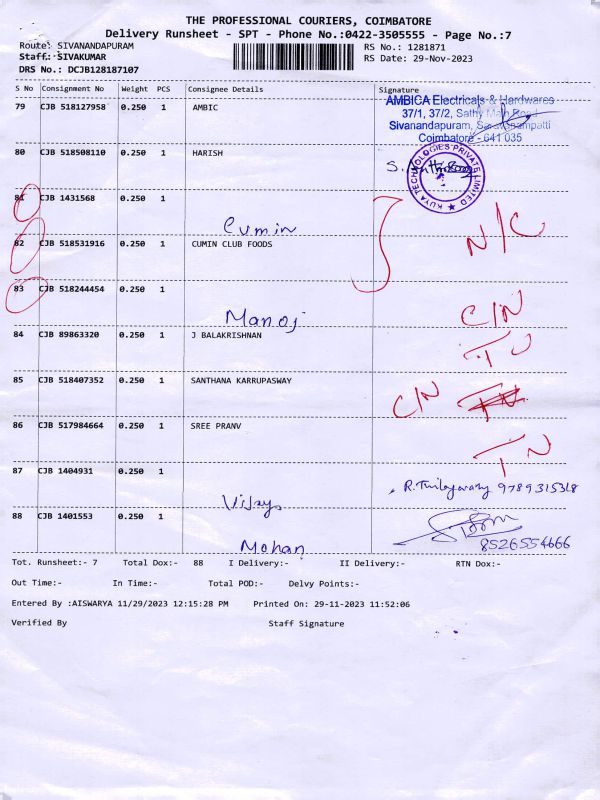 THE PROFESSIONAL COURIERS, COIMBATORE
Delivery Runsheet - SPT - Phone No.:0422-3505555 - Page No.:7
Route: SIVANANDAPURAM RS No.: 1281871
Staff.: SIVAKUMAR RS Date: 29-Nov-2023
DRS No.: DCJB128187107
S No Consignment No Weight PCS Consignee Details Signature
79 CJB 518127958 0.250 1 AMBIC
AMBICA Electricals & Hardwares
37/1, 37/2, Sathy Main Road
Sivanandapuram, Saravanampatti
Coimbatore - 641 035
80 CJB 518508110 0.250 1 HARISH
KUYA TECHNOLOGIES PRIVATE LIMITED
81 CJB 1431568 0.250 1
Cumin
82 CJB 518531916 0.250 1 CUMIN CLUB FOODS N/C
83 CJB 518244454 0.250 1
Manoj C/N
84 CJB 89863320 0.250 1 J BALAKRISHNAN
85 CJB 518407352 0.250 1 SANTHANA KARRUPASWAY C/N
86 CJB 517984664 0.250 1 SREE PRANV
87 CJB 1404931 0.250 1
Vijay 9789315318
88 CJB 1401553 0.250 1
Mohan 8526554666
Tot. Runsheet:- 7 Total Dox:- 88 I Delivery:- II Delivery:- RTN Dox:-
Out Time:- In Time:- Total POD:- Delvy Points:-
Entered By :AISWARYA 11/29/2023 12:15:28 PM Printed On: 29-11-2023 11:52:06
Verified By Staff Signature